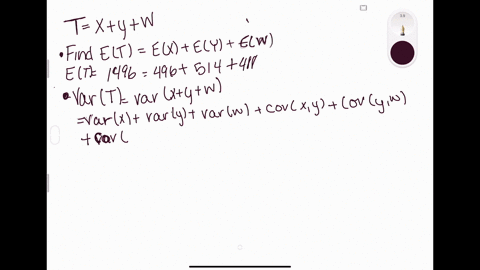 T = X + y + W
• Find E(T) = E(X) + E(Y) + E(W)
E(T) = 1496 = 496 + 514 +
• Var(T) = var(x+y+w)
= var(x) + var(y) + var(w) + cov(x,y) + Cov(y,w)
+ Cov(